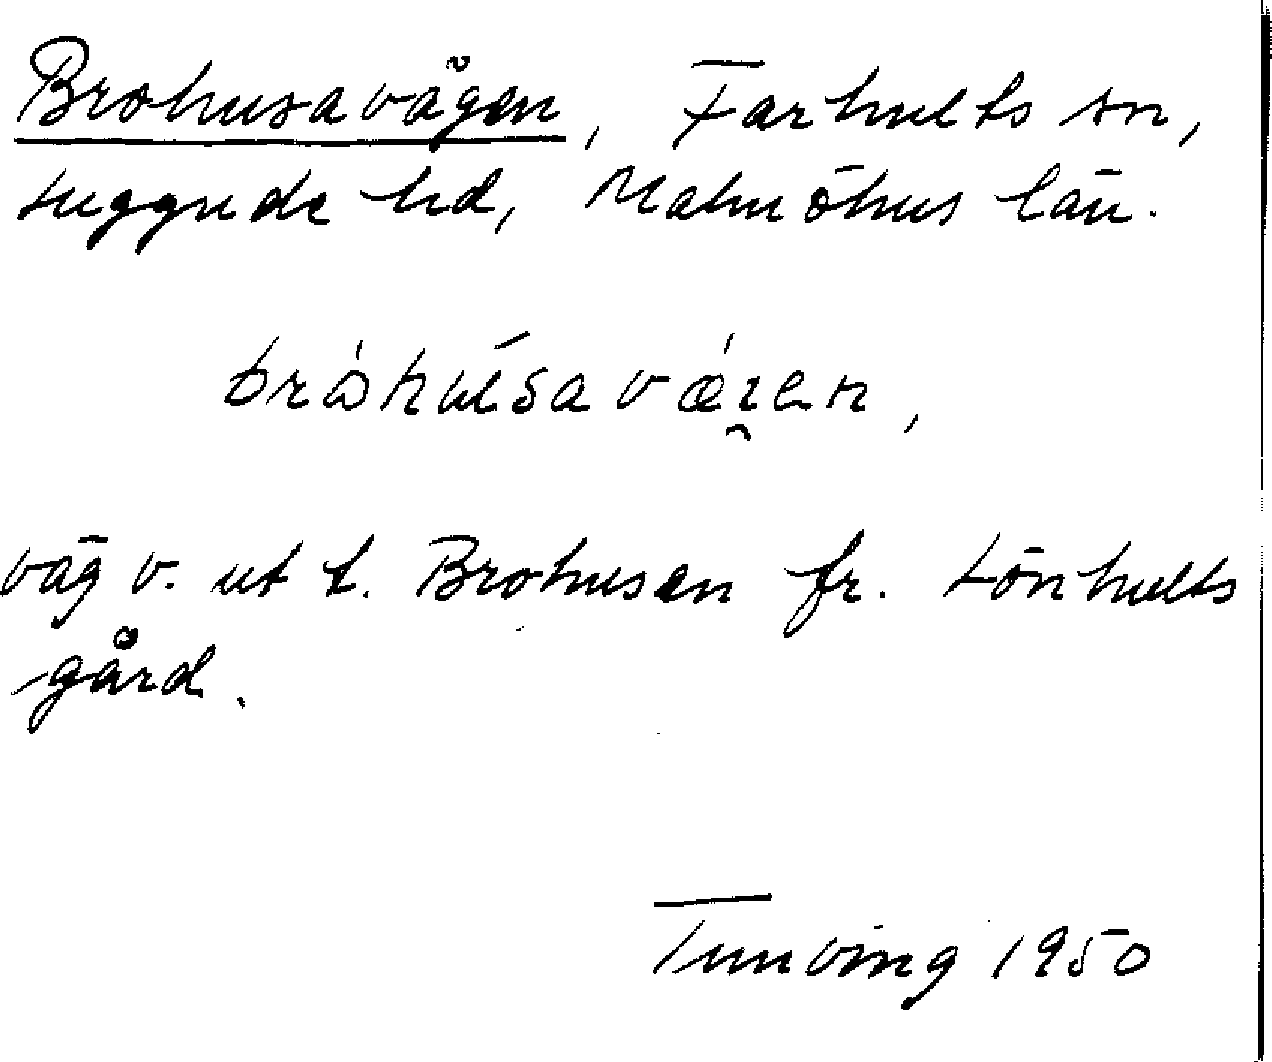 Brohusavägen, Farhults sn,
Luggude hd, Malmöhus län.
bròhúsaväǵen,
väg v. ut t. Brohusen fr. Lönhults
gård.
Tunving 1950